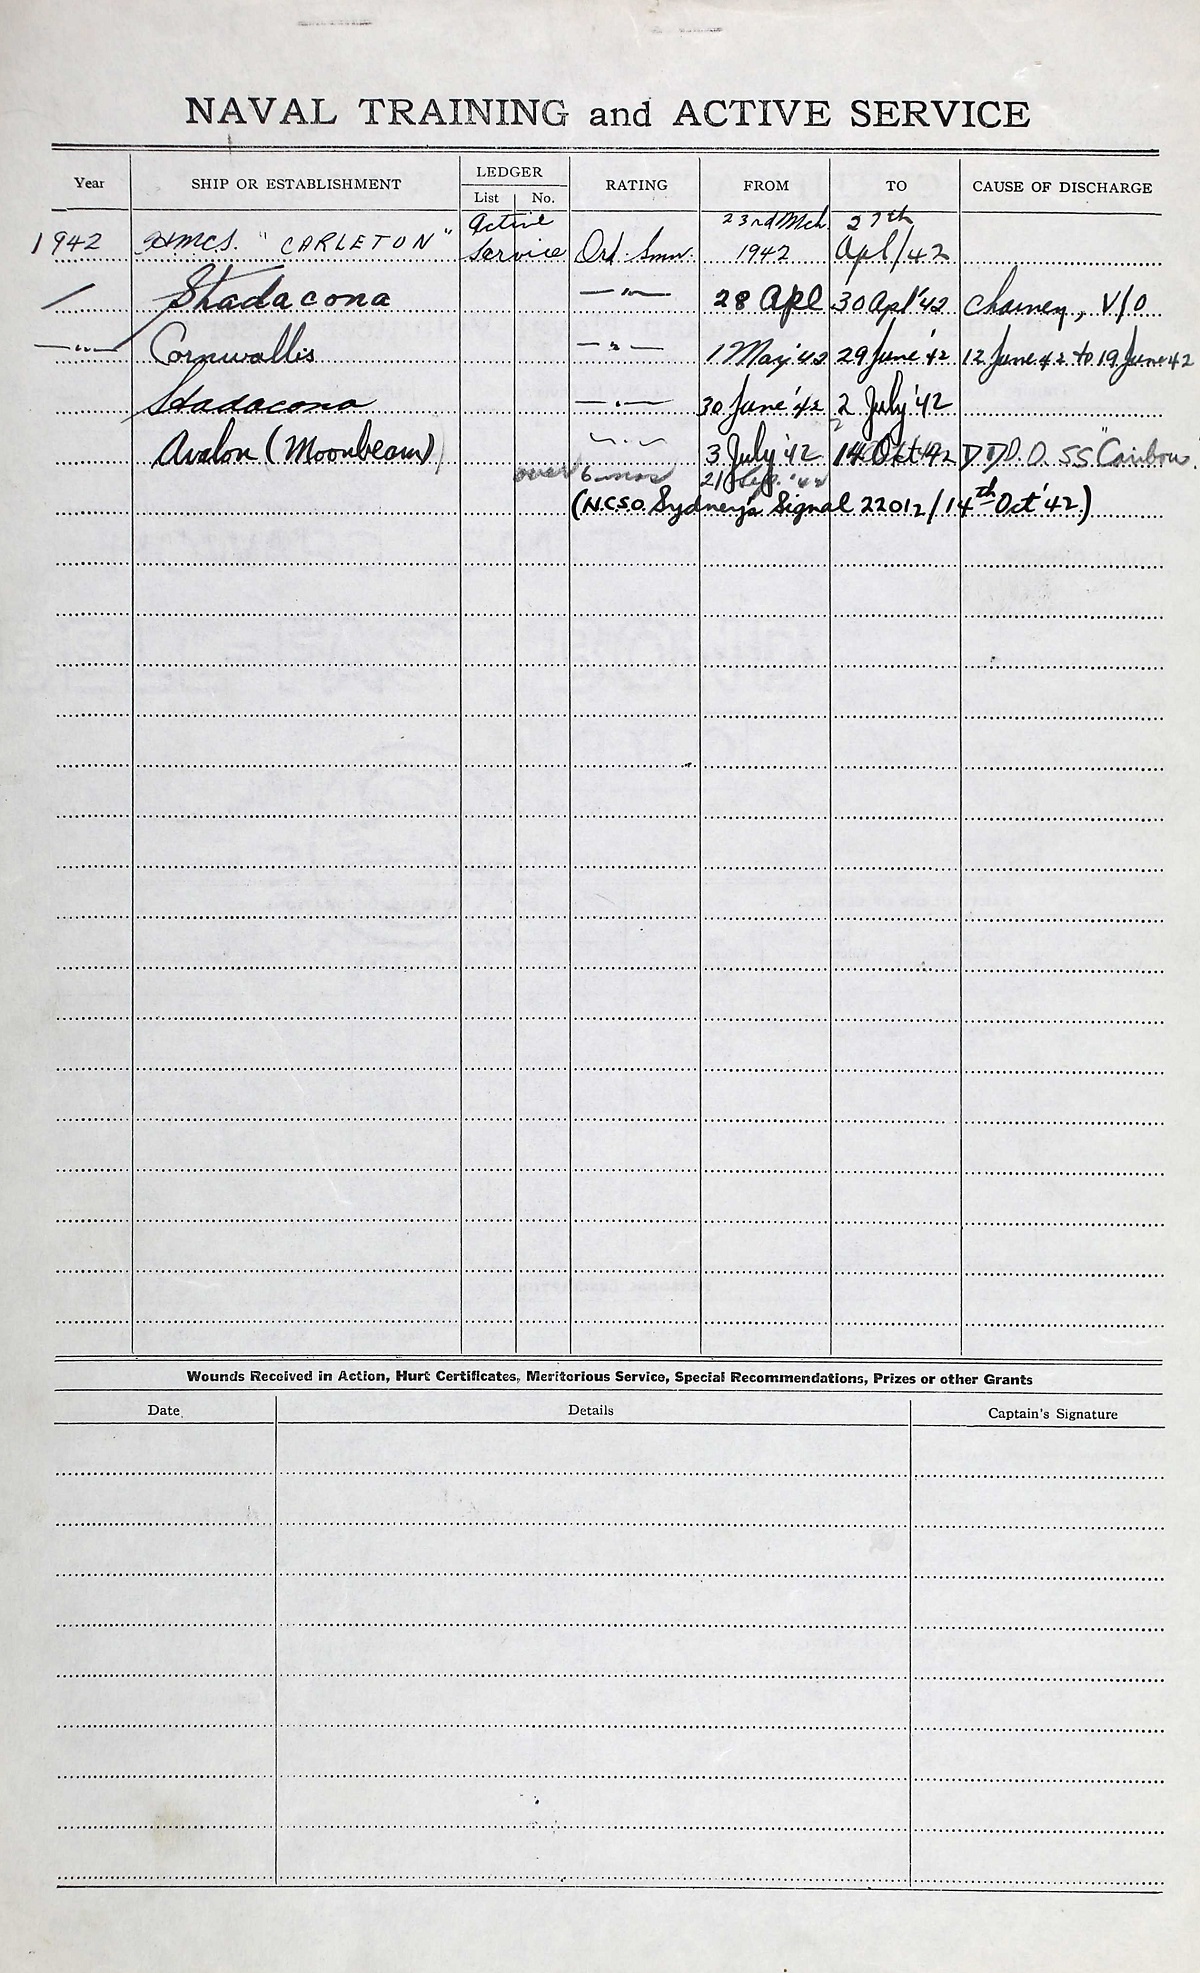 NAVAL TRAINING and ACTIVE SERVICE
Year SHIP OR ESTABLISHMENT LEDGER List No. RATING FROM TO CAUSE OF DISCHARGE
Active 23rd Mch. 27th
1942 HMCS. "CARLETON" Service Ord. Smn. 1942 Apl/42
Stadacona —"— 28 Apl 30 Apl '42 V/O
—"— Cornwallis —"— 1 May '42 29 June '42 12 June 42 to 19 June 42
Stadacona —"— 30 June '42 2 July '42
Avalon (Moonbeam) —"— 3 July '42 14 Oct '42 D.D. O. SS "Caribou"
over 6 mos 21 Sep. '42
(N.C.S.O. Sydney's Signal 22012/14th Oct '42)
Wounds Received in Action, Hurt Certificates, Meritorious Service, Special Recommendations, Prizes or other Grants
Date Details Captain's Signature